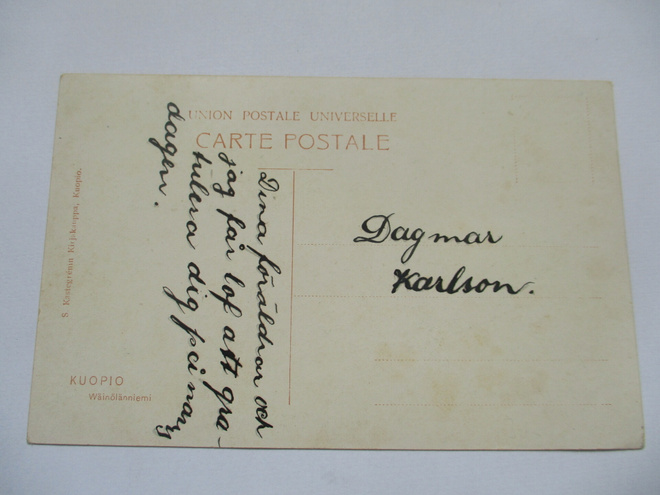 UNION POSTALE UNIVERSELLE
CARTE POSTALE
Dina föräldrar och
jag får lof att gra-
tulera dig på nams
dagen.
Dagmar
Karlson.
S. Kontegrénin Kirjakauppa, Kuopio.
KUOPIO
Wäinölänniemi